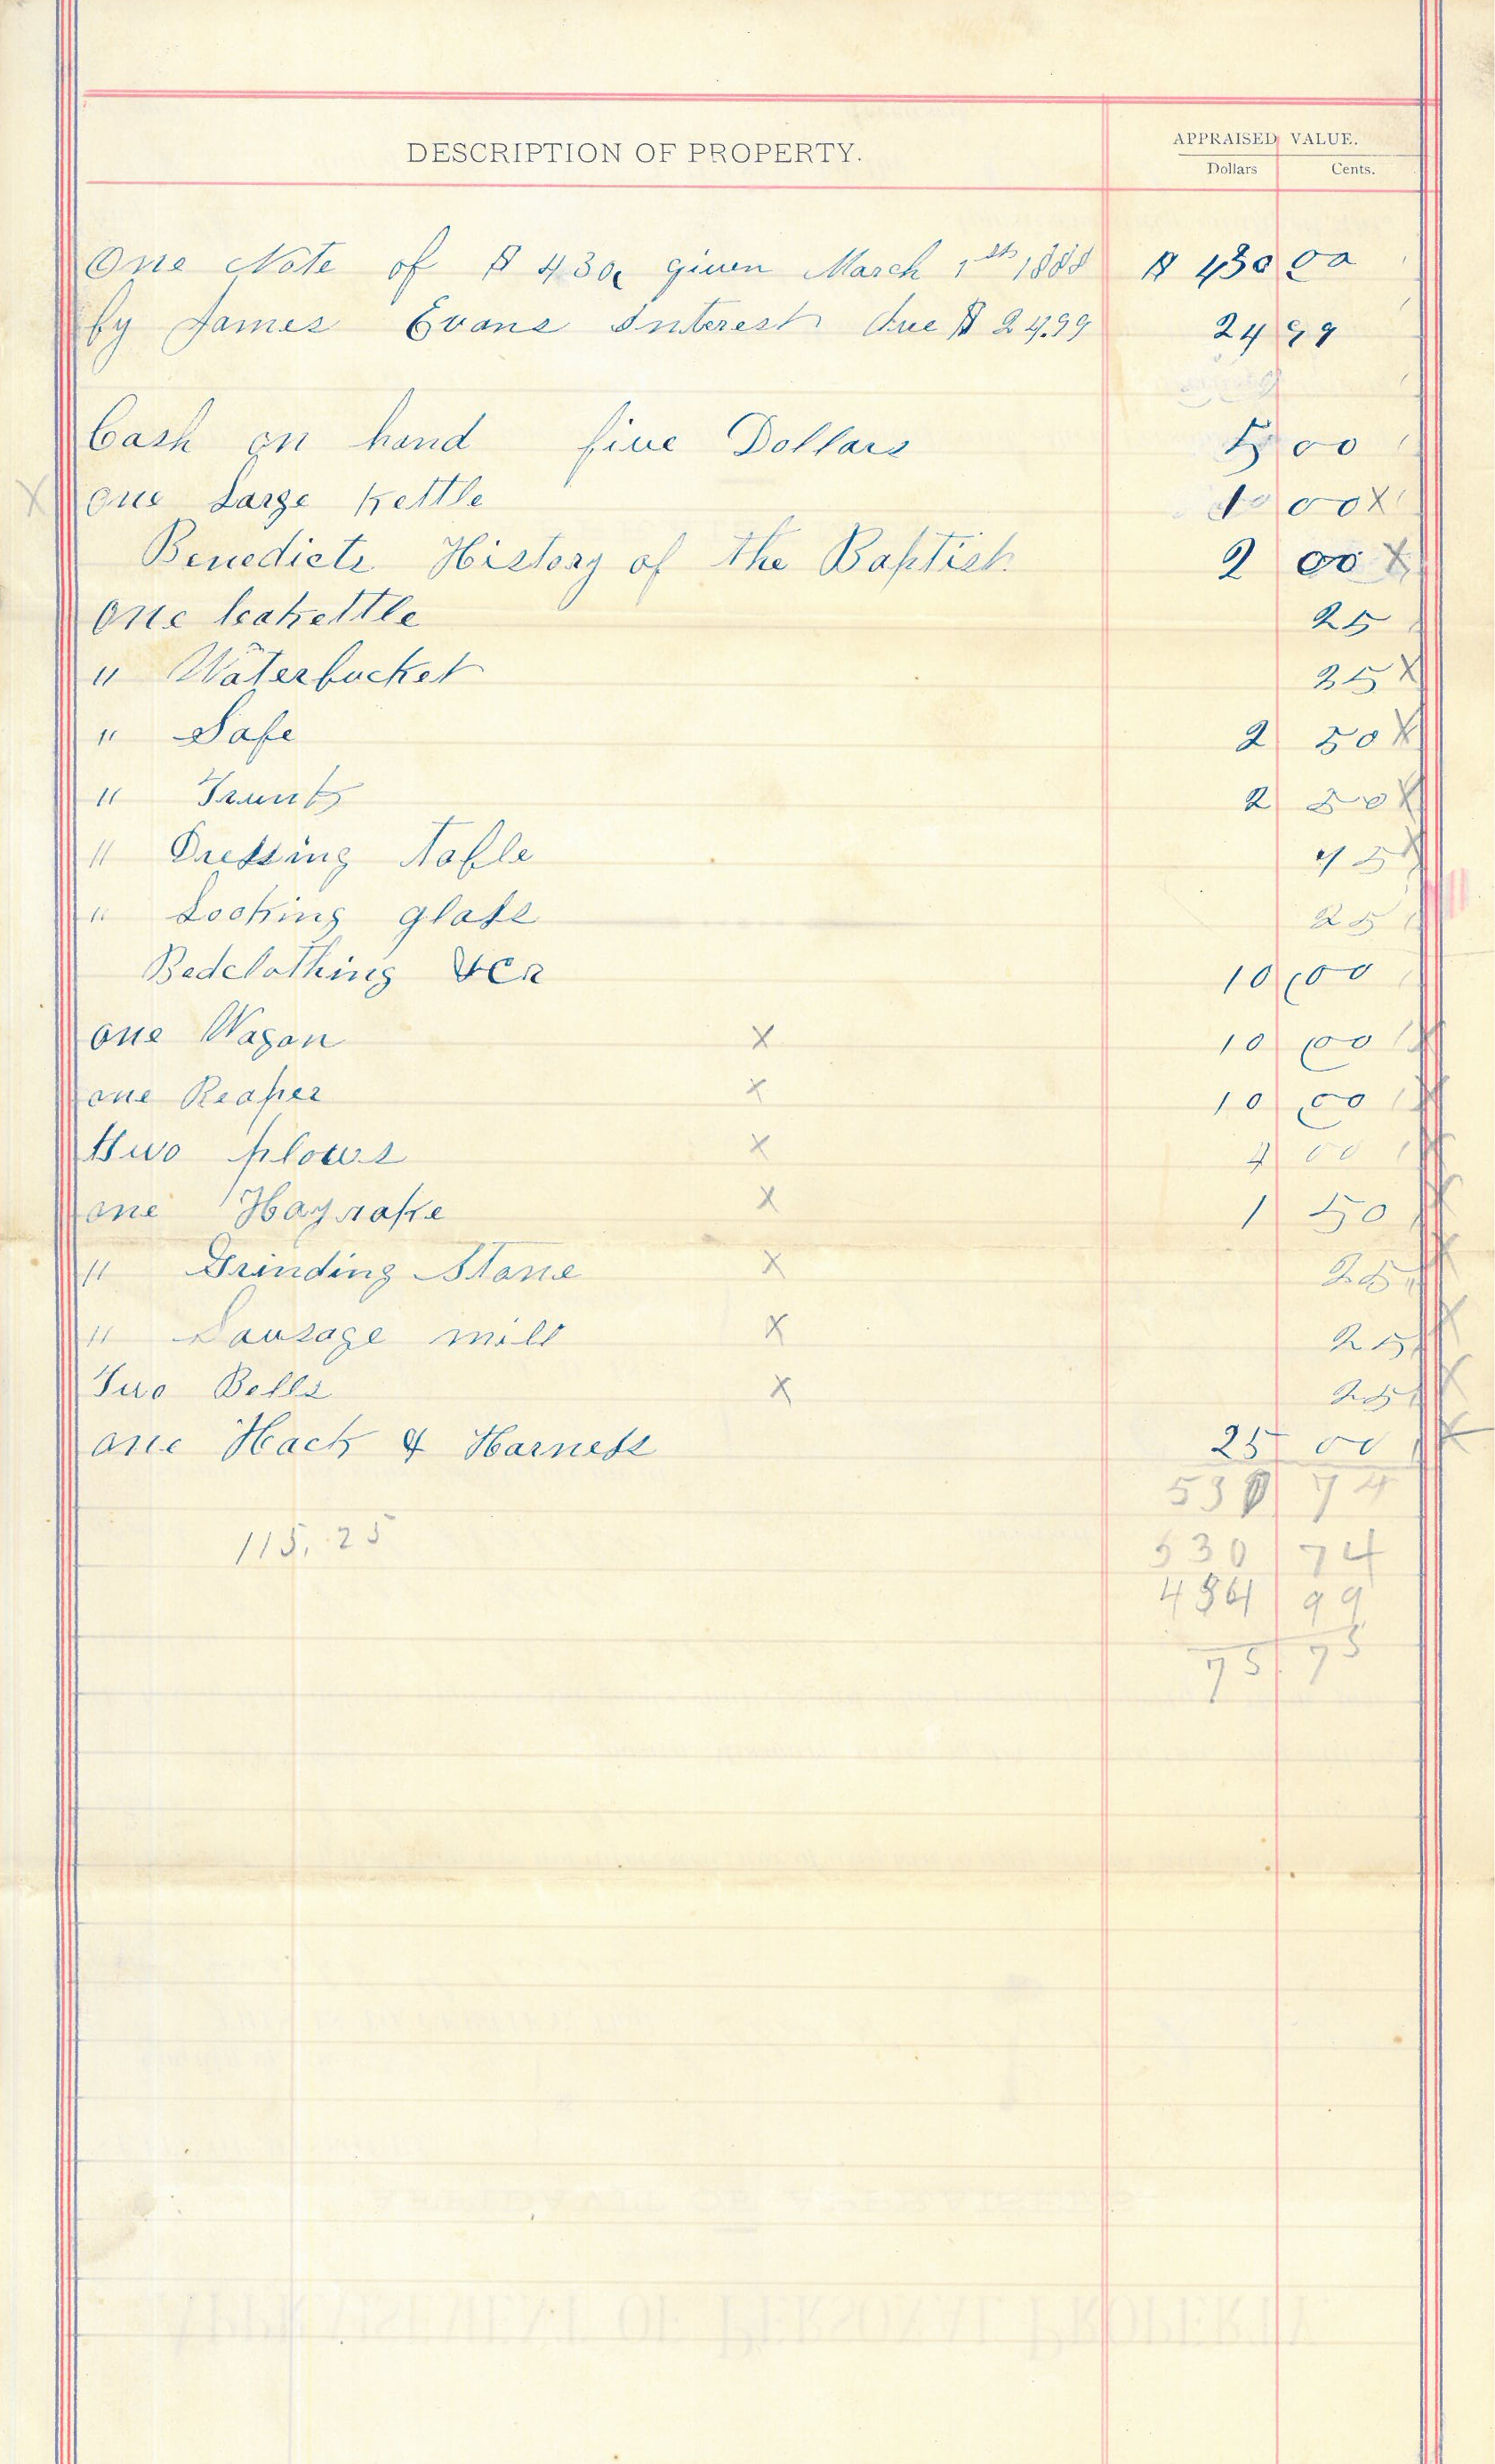 DESCRIPTION OF PROPERTY.
APPRAISED VALUE.
Dollars Cents.
One Note of $ 430, given March 1st 1888 $ 430 00
by James Evans Interest due $ 24.99 24 99
Cash on hand five Dollars 5 00
X one Large Kettle 1 00 X
Benedicts History of the Baptist 2 00 X
one teakettle 25
" Waterbucket 25 X
" Safe 2 50 X
" Trunk 2 50 X
" Dressing table 75 X
" Looking glass 25
Bedclothing &ca 10 00
one Wagon X 10 00 X
one Reaper X 10 00 X
two plows X 4 00 X
one Hayrake X 1 50 X
" Grinding Stone X 25 X
" Sausage mill X 25 X
Two Bells X 25 X
one Hack & Harness 25 00 X
530 74
115.25 530 74
454 99
75 75